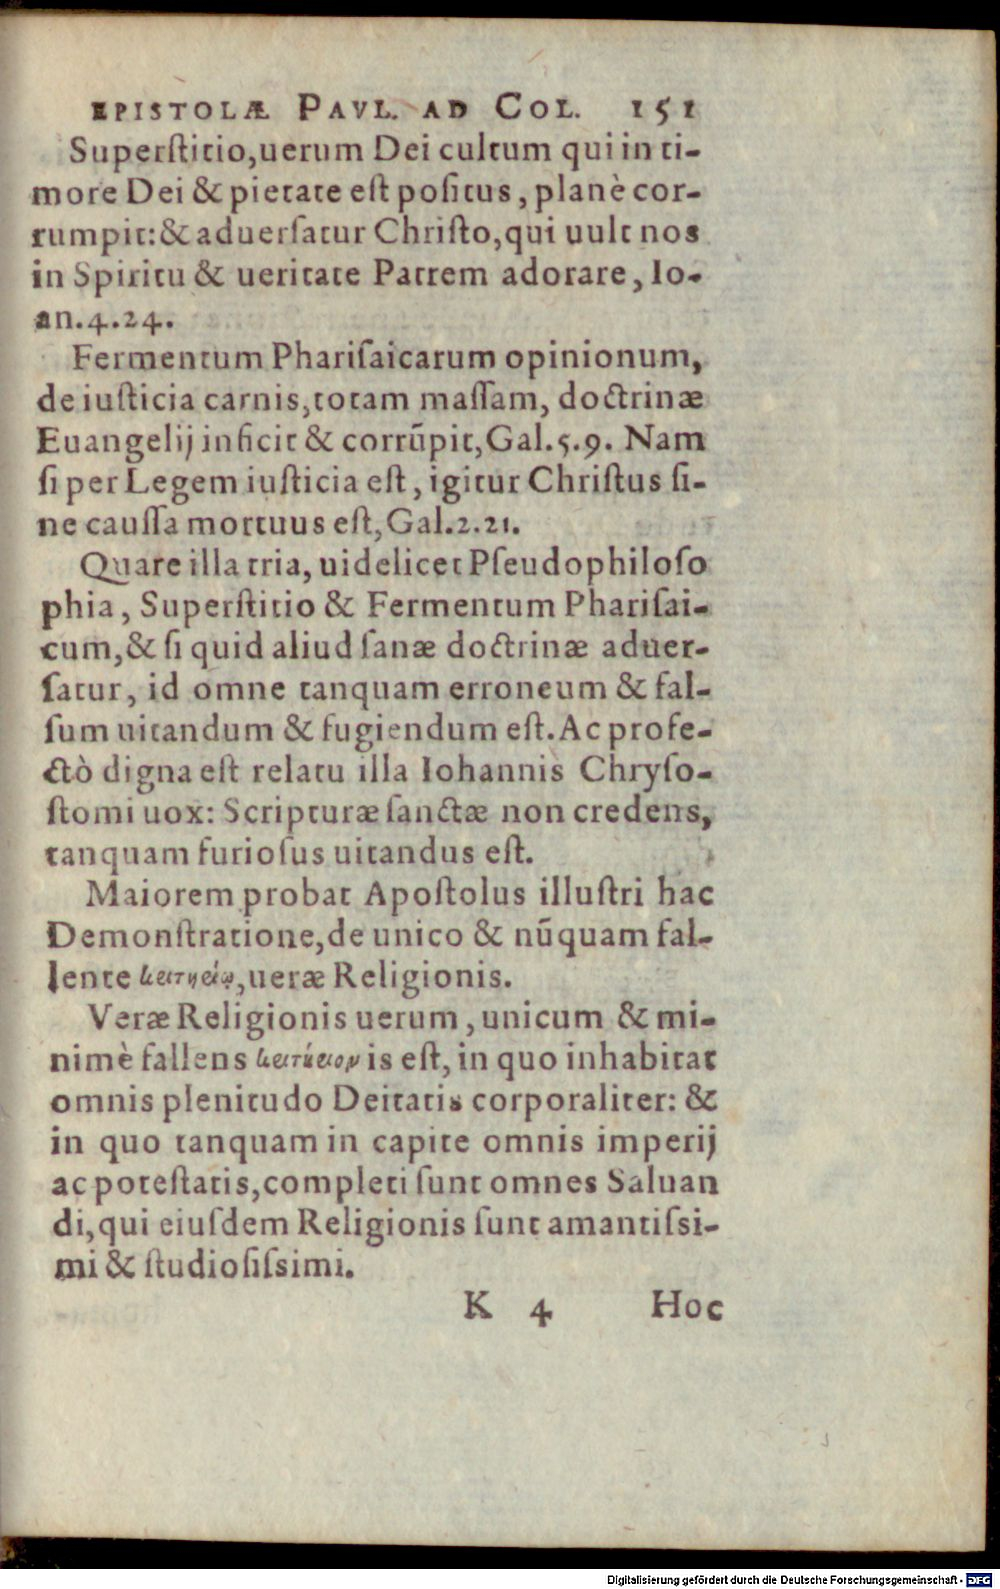 EPISTOLÆ PAVL. AD COL. 151
Superſtitio,uerum Dei cultum qui in ti-
more Dei & pietate eſt poſitus, planè cor-
rumpit:& aduerſatur Chriſto,qui uult nos
in Spiritu & ueritate Patrem adorare, Io-
an.4.24.
Fermentum Phariſaicarum opinionum,
de iuſticia carnis,totam maſſam, doctrinæ
Euangelij inficit & corrũpit,Gal.5.9. Nam
ſi per Legem iuſticia eſt, igitur Chriſtus ſi-
ne cauſſa mortuus eſt,Gal.2.21.
Quare illa tria, uidelicet Pſeudophiloſo
phia, Superſtitio & Fermentum Phariſai-
cum,& ſi quid aliud ſanæ doctrinæ aduer-
ſatur, id omne tanquam erroneum & fal-
ſum uitandum & fugiendum eſt. Ac profe-
ctò digna eſt relatu illa Iohannis Chryſo-
ſtomi uox: Scripturæ ſanctæ non credens,
tanquam furioſus uitandus eſt.
Maiorem probat Apoſtolus illuſtri hac
Demonſtratione,de unico & nũquam fal-
lente ,ueræ Religionis.
Veræ Religionis uerum, unicum & mi-
nimè fallens is eſt, in quo inhabitat
omnis plenitudo Deitatis corporaliter: &
in quo tanquam in capite omnis imperij
ac poteſtatis,completi ſunt omnes Saluan
di,qui eiuſdem Religionis ſunt amantiſsi-
mi & ſtudioſiſsimi.
K 4 Hoc
Digitalisierung gefördert durch die Deutsche Forschungsgemeinschaft - DFG